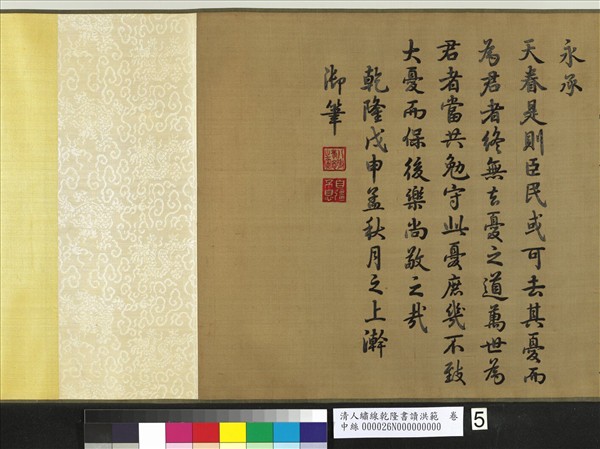 永承
天眷是則臣民或可去其憂而
為君者終無去憂之道萬世為
君者當共勉守此憂庶幾不致
大憂而保後樂尚敬之哉
乾隆戊申孟秋月之上澣
御筆
清人繡線乾隆書讀洪範 卷
中絲 000026N000000000
5